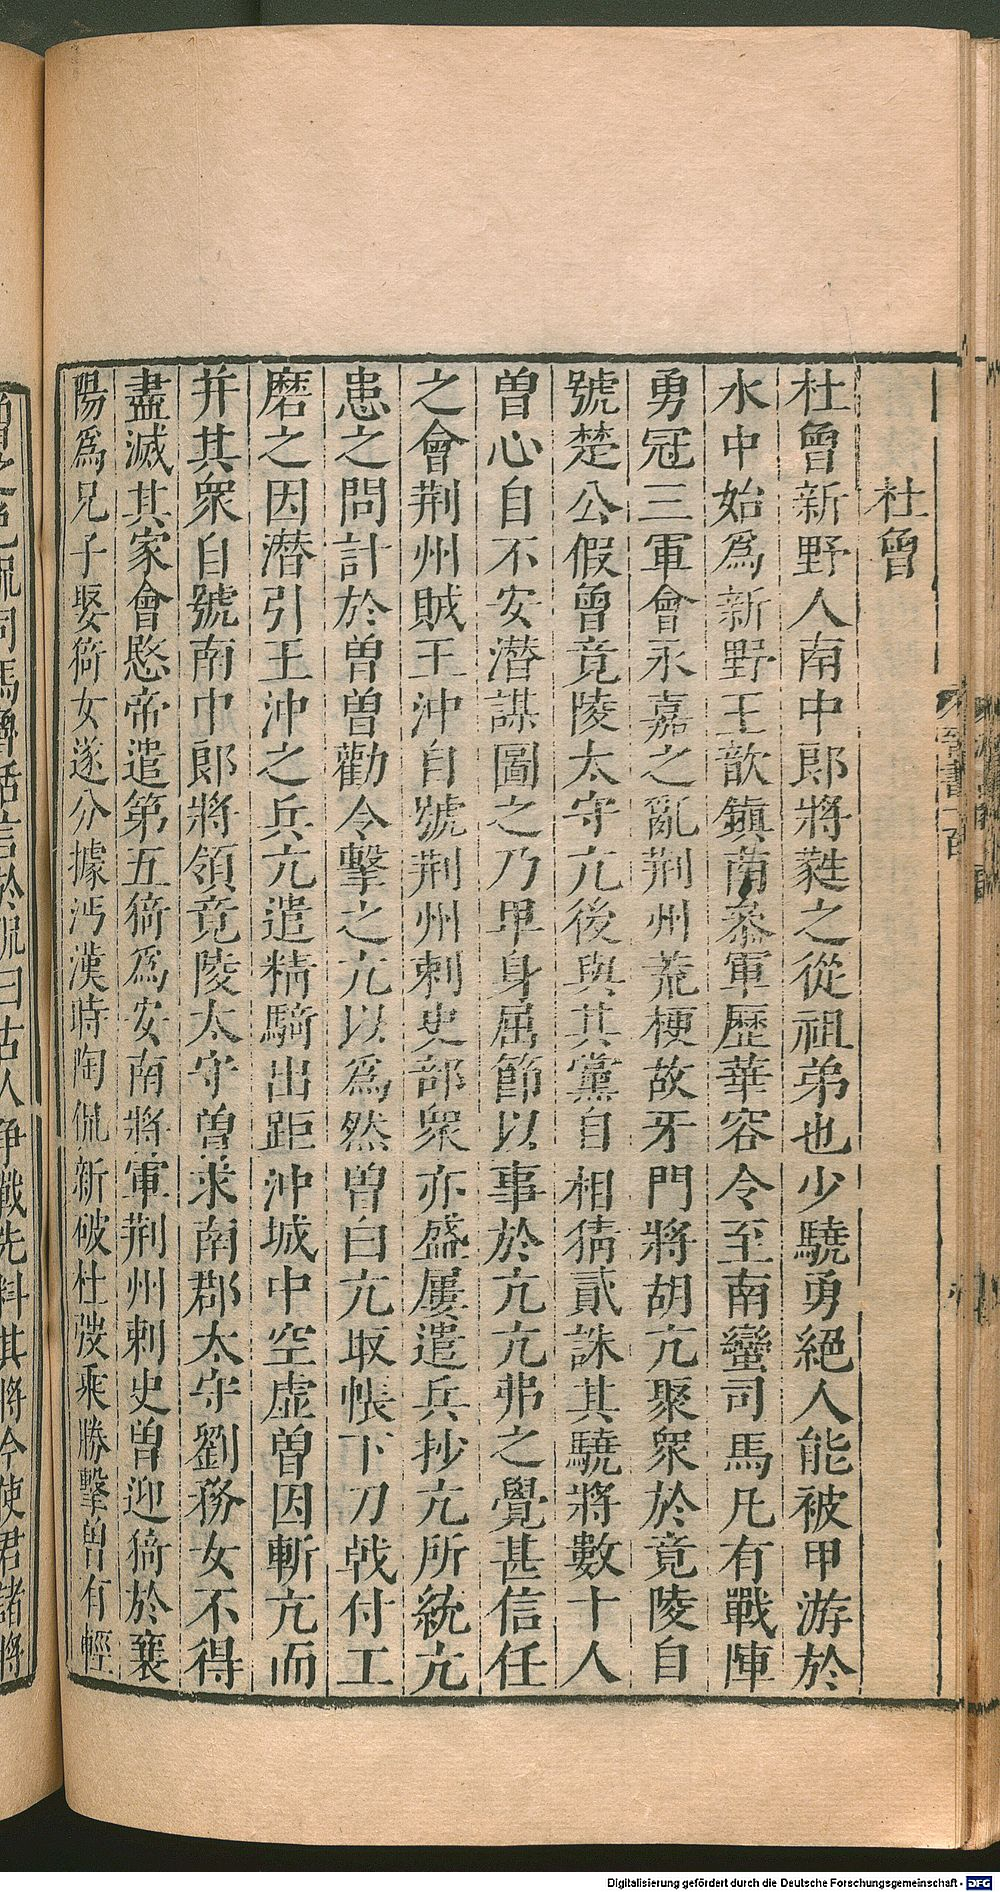 杜曾
杜曾新野人南中郎將蕤之從祖弟也少驍勇絕人能被甲游於
水中始爲新野王歆鎮南參軍歷華容令至南蠻司馬凡有戰陣
勇冠三軍會永嘉之亂荆州荒梗故牙門將胡亢聚衆於竟陵自
號楚公假曾竟陵太守亢後與其黨自相猜貳誅其驍將數十人
曾心自不安潛謀圖之乃卑身屈節以事於亢亢弗之覺甚信任
之會荆州賊王沖自號荆州刺史部衆亦盛屢遣兵抄亢所統亢
患之問計於曾曾勸令擊之亢以爲然曾白亢取帳下刀戟付工
磨之因潛引王沖之兵亢遣精騎出距沖城中空虛曾因斬亢而
并其衆自號南中郎將領竟陵太守曾求南郡太守劉務女不得
盡滅其家會愍帝遣第五猗爲安南將軍荆州刺史曾迎猗於襄
陽爲兄子娶猗女遂分據沔漢時陶侃新破杜弢乘勝擊曾有輕
晉書一百
曾之色侃司馬魯恬言於侃曰古人爭戰先料其將今使君諸將
Digitalisierung gefördert durch die Deutsche Forschungsgemeinschaft - DFG